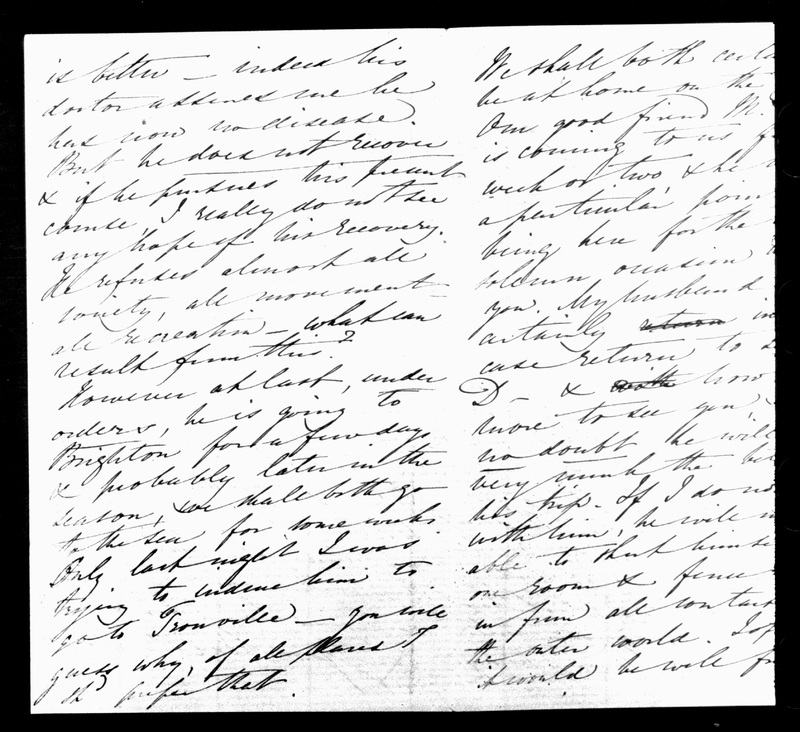 is better – indeed his
doctor assures me he
has now no disease.
But he does not recover
& if he pursues his present
course, I really do not see
any hope of his recovery.
He refuses almost all
society, all movement –
all recreation – what can
result from this?
However at last, under
orders, he is going to
Brighton for a few days
& probably later in the
season, we shall both go
to the sea for some weeks
Only last night I was
trying to induce him to
go to Trouville – you will
guess why, of all places I
sh^d prefer that.
We shall both certa
be at home on the
Our good friend M.
is coming to us f
week or two & he
a particular poin
being here for the
solemn occasion
you. My husband
certainly return in
case return to
D – & with how
more to see you,
no doubt he will
very much the
his trip. If I do no
with him, he will
able to shut himse
one room & fence
in from all contact
the outer world.
I would he will